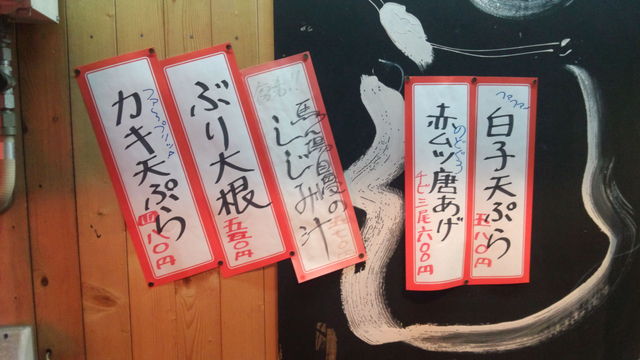 ファ〜プリッ
カキ天ぷら
四八〇円
ぶり大根
五五〇円
自慢の
しじみ汁
赤ムツ唐あげ
のどぐろ
チビ三尾六〇〇円
フワフワ
白子天ぷら
五八〇円